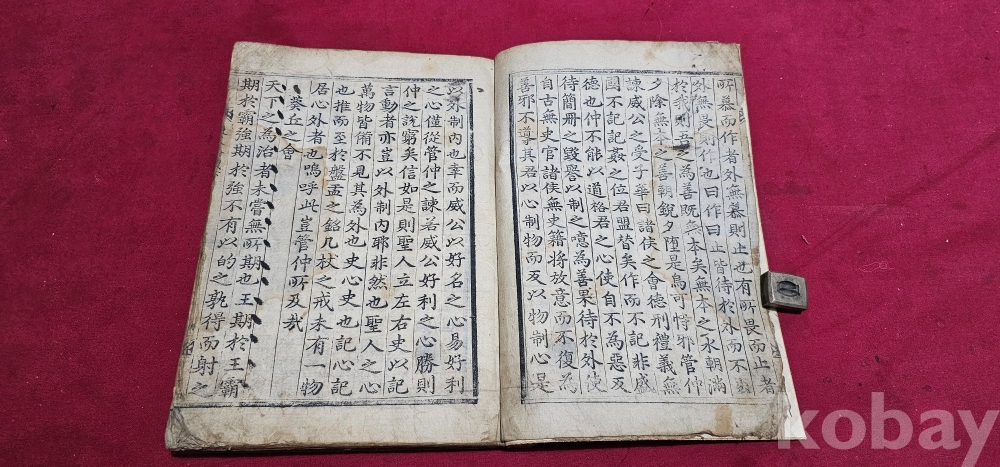 所慕而作者外無慕則止也有所畏而止者
外無畏則作也曰作曰止皆待於外而不出
於我則吾之為善既無本矣無本之水朝滿
夕除無本之善朝銳夕墮是烏可恃邪管仲
諫威公之受子華曰諸侯之會德刑禮義無
國不記記姦之位君盟替矣作而不記非盛
德也仲不能以道格君之心使自不為惡反
待簡冊之毀譽以制之噫為善果待於外使
自古無史官諸侯無史籍將放意而不復為
善邪不導其君以心制物而反以物制心是
以外制內也幸而威公以好名之心易好利
之心僅從管仲之諫若威公好利之心勝則
仲之說窮矣信如是則聖人立左右史以記
言動者亦豈以外制內耶非然也聖人之心
萬物皆備不見其為外也史心史也記心記
也推而至於盤盂之銘几杖之戒未有一物
居心外者也嗚呼此豈管仲所及哉
葵丘之會
天下之為治者未嘗無所期也王期於王霸
期於霸強期於強不有以的之孰得而射之
kobay